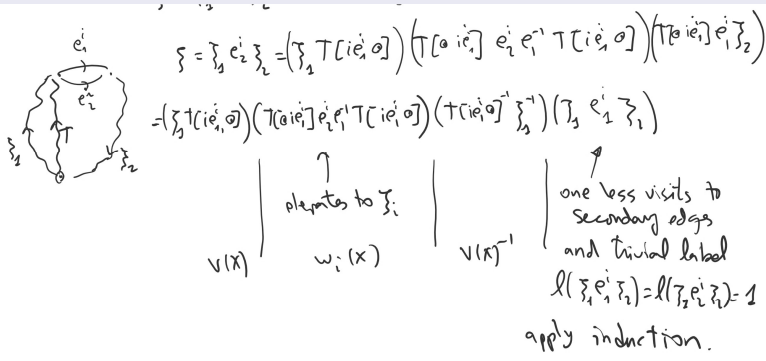 e₁ⁱ
e₂ⁱ
ξ₁
T
ξ₂
ξ = ξ₁ e₂ⁱ ξ₂ = (ξ₁ T[ie₁ⁱ, o]) (T[o, ie₁ⁱ] e₂ⁱ e₁⁻¹ T[ie₁ⁱ, o]) (T[o, ie₁ⁱ] e₁ⁱ ξ₂)
= (ξ₁ T[ie₁ⁱ, o]) (T[o, ie₁ⁱ] e₂ⁱ e₁ⁱ⁻¹ T[ie₁ⁱ, o]) (T[ie₁ⁱ, o]⁻¹ ξ₁⁻¹) (ξ₁ e₁ⁱ ξ₂)
to ξᵢ
one less visits to
secondary edges
and trivial label
v(x) wᵢ(x) v(x)⁻¹
l(ξ₁ e₁ⁱ ξ₂) = l(ξ₁ e₂ⁱ ξ₂) = 1
apply induction.